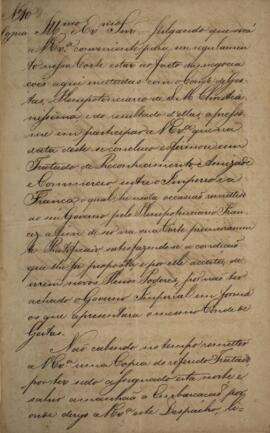 Nº 10
Copia Illmo e Exmo Snr. Julgando que será
a V Exª conveniente
nessa Corte estar ao facto da negocia
ções aqui encetadas com o Conde de Ges
tas, Plenipotenciario de S. M. Christia
nissima, e do resultado d'ellas, apres
so-me em participar a V Exª que na
data deste se concluio e firmou um
Tratado de Reconhecimento, e Amizade
e Commercio entre o Imperio e a
França, o qual he nesta occasião remettido
ao seu Governo pelo Plenipotenciario Fran
cez, a fim de ser na sua Corte primeiramen
te Ratificado satisfazendo-se a condição
que lhe foi proposta e por elle acceita, de
virem novos Plenos Poderes, por não ter
achado o Governo Imperial em forma
os que apresentara o mesmo Conde de
Gestas.
Não cabendo no tempo remetter
a V Exª uma Copia do referido Tratado
por ter sido assignado esta noite e
sahir amanhãa a Embarcação, por
onde dirijo a V Exª este Despacho,